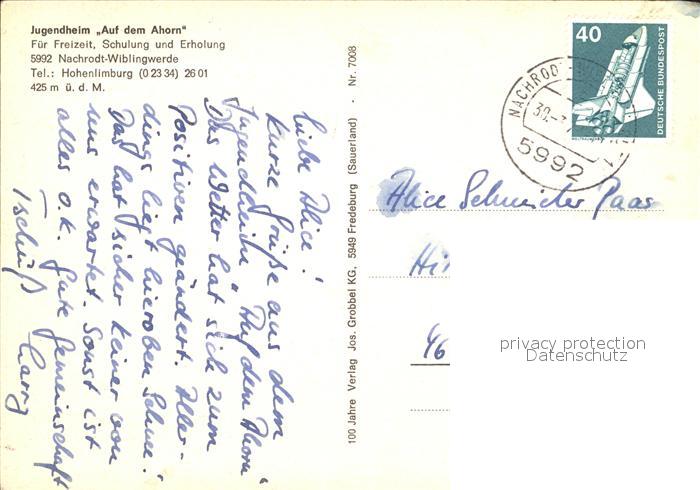 Jugendheim „Auf dem Ahorn"
Für Freizeit, Schulung und Erholung
5992 Nachrodt-Wiblingwerde
Tel.: Hohenlimburg (0 23 34) 26 01
425 m ü. d. M.
Liebe Alice!
Kurze Grüße aus dem
Jugendheim "Auf dem Ahorn"
Das Wetter hat sich zum
Positiven geändert. Aller-
dings liegt hieroben Schnee!
Das hat sicher keiner von
uns erwartet. Sonst ist
alles o.k. Gute Gemeinschaft
Tschüß Carry
100 Jahre Verlag Jos. Grobbel KG, 5949 Fredeburg (Sauerland) · Nr. 7008
40
DEUTSCHE BUNDESPOST
NACHRODT
5992
Alice Schneider Paas
Hi
46
privacy protection
Datenschutz